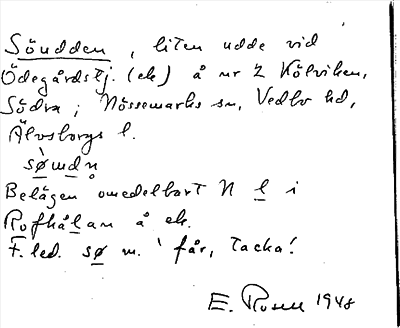 Söudden, liten udde vid
Ödegårdstj. (ek) å nr 2 Kölviken,
Södra; Nössemarks sn, Vedbo hd,
Älvsborgs l.
sø̀wdn̥
Belägen omedelbart N l i
Rofhålan å ek.
F. led. sø m. 'får, tacka'.
E. Rosell 1948